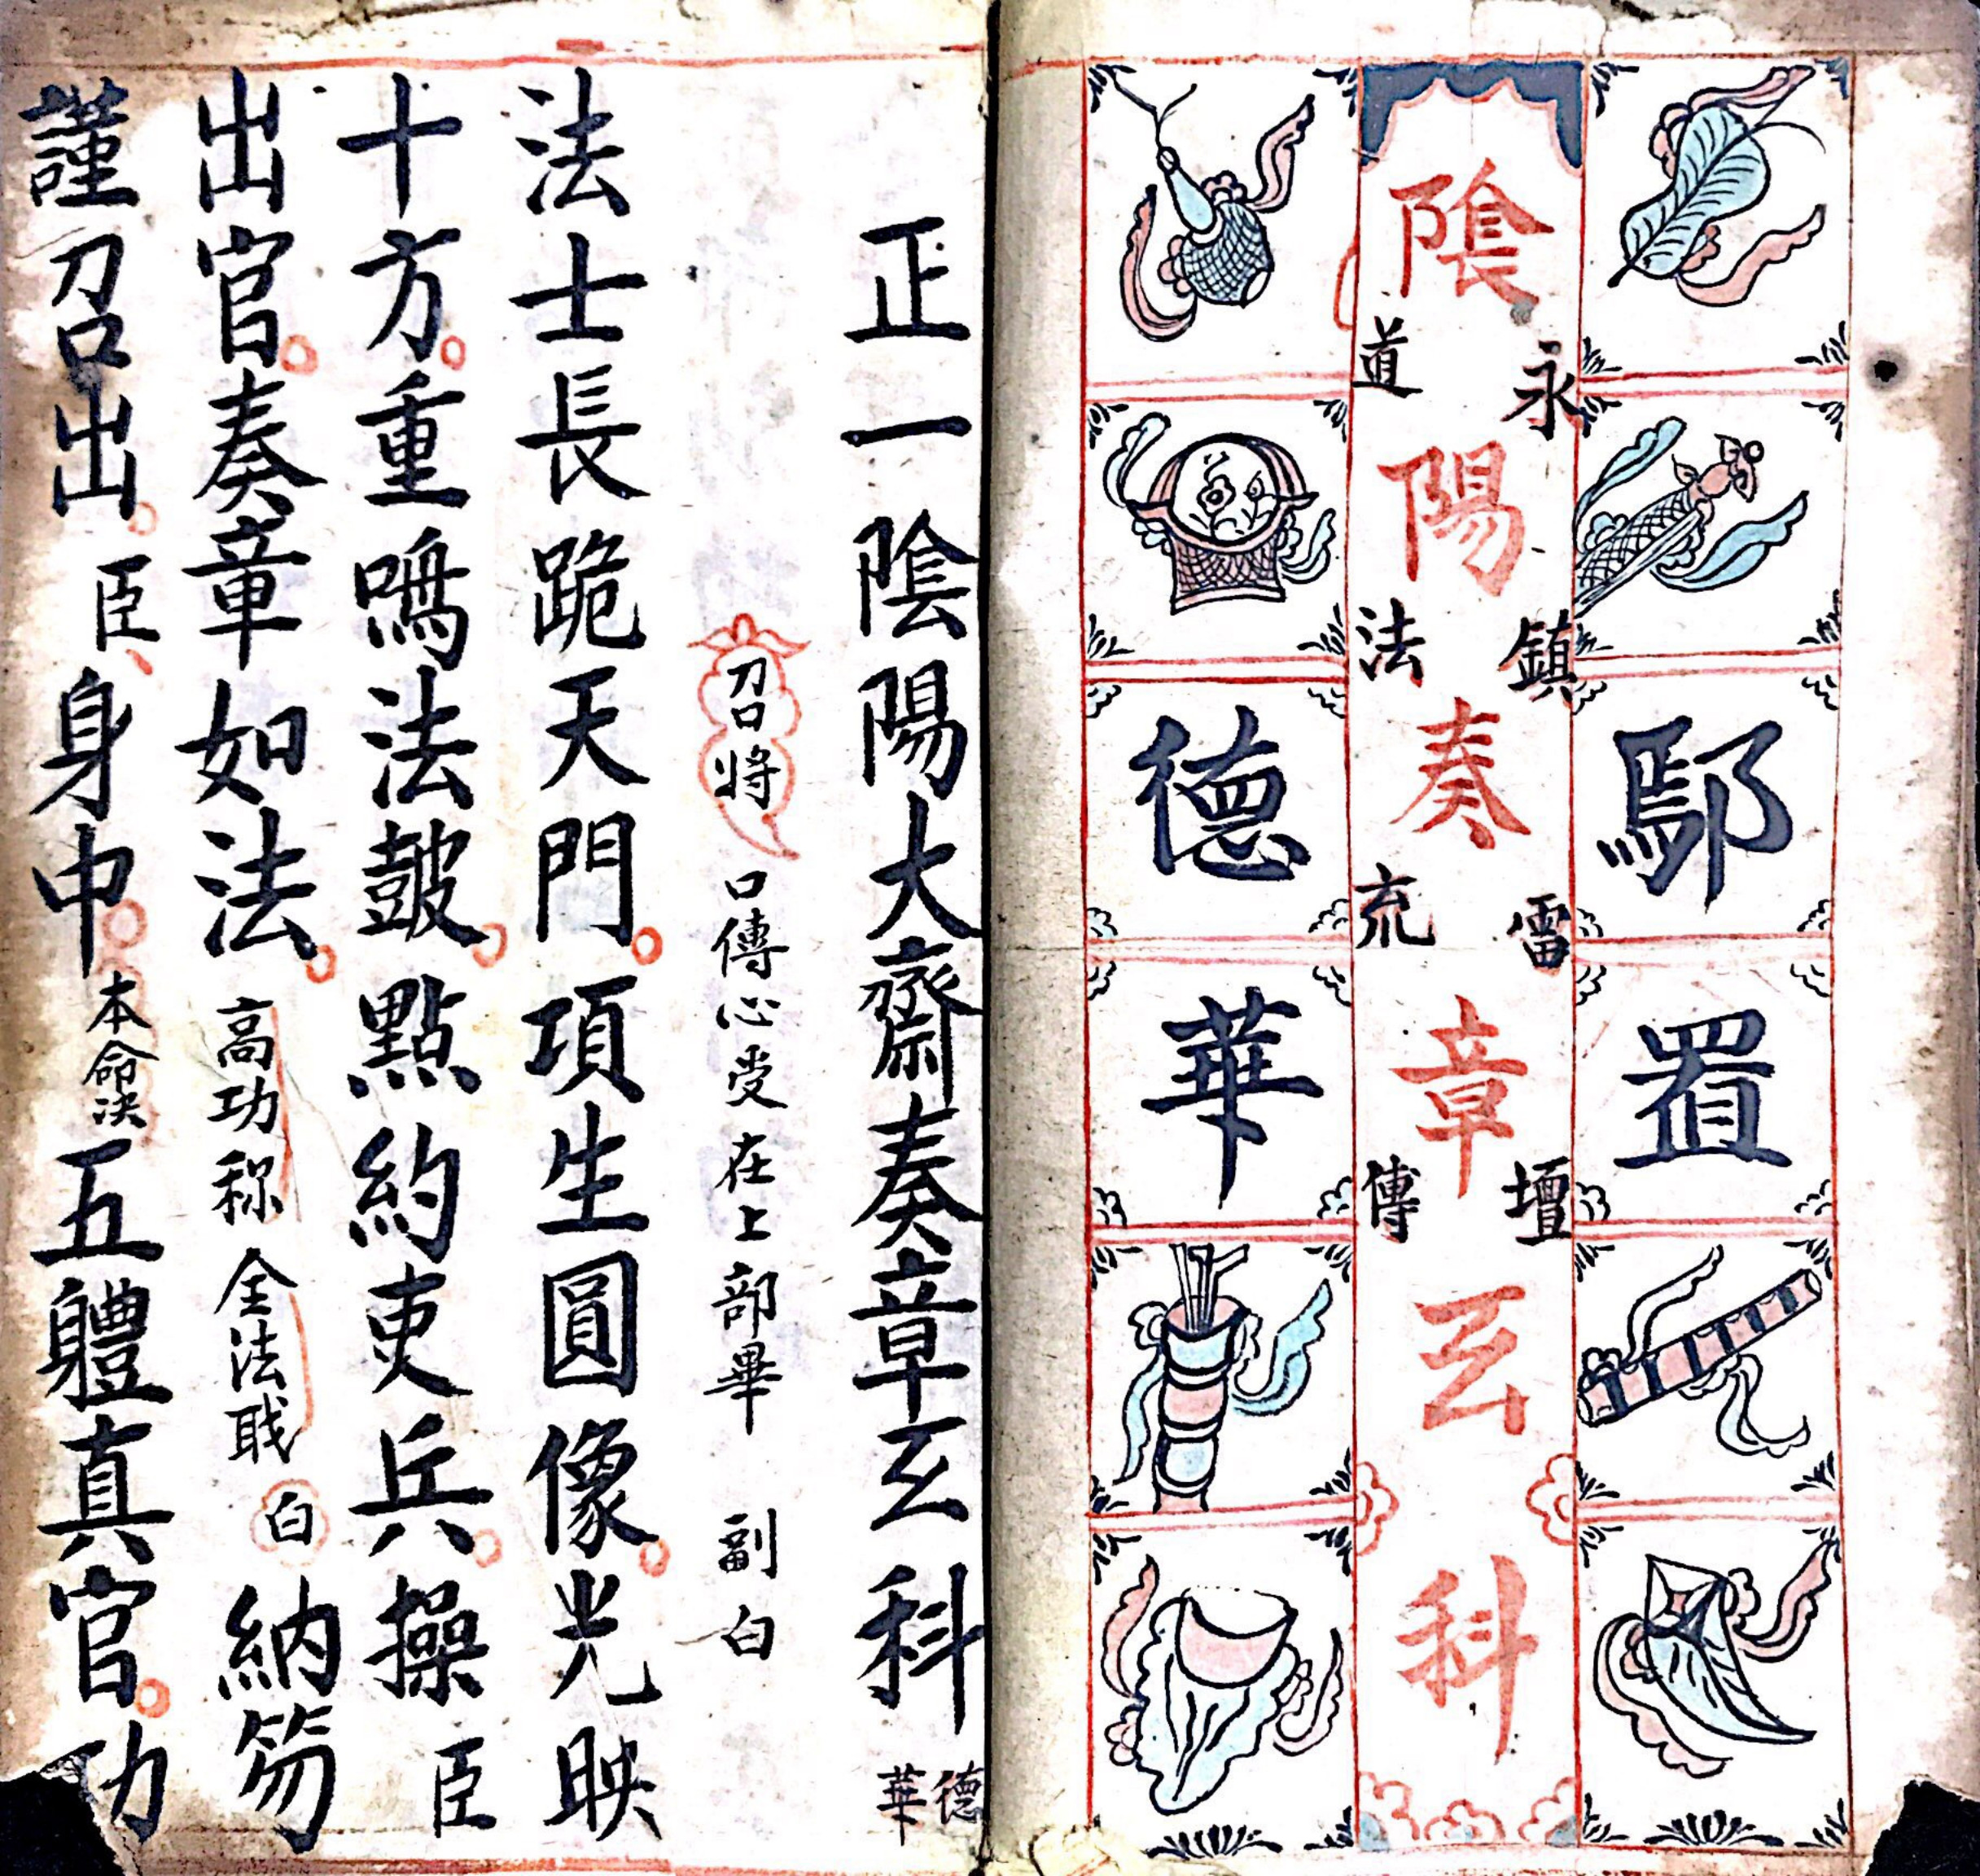 鄢置
永鎮雷壇
陰陽奏章玄科
道法充傳
德華
正一陰陽大齋奏章玄科 德華
召將 口傳心受在上部畢 副白
法士長跪天門項生圓像光映
十方重鳴法鼓點約吏兵操臣
出官奏章如法 高功称全法職 白 納笏
謹召出臣身中 本命决 五體真官功